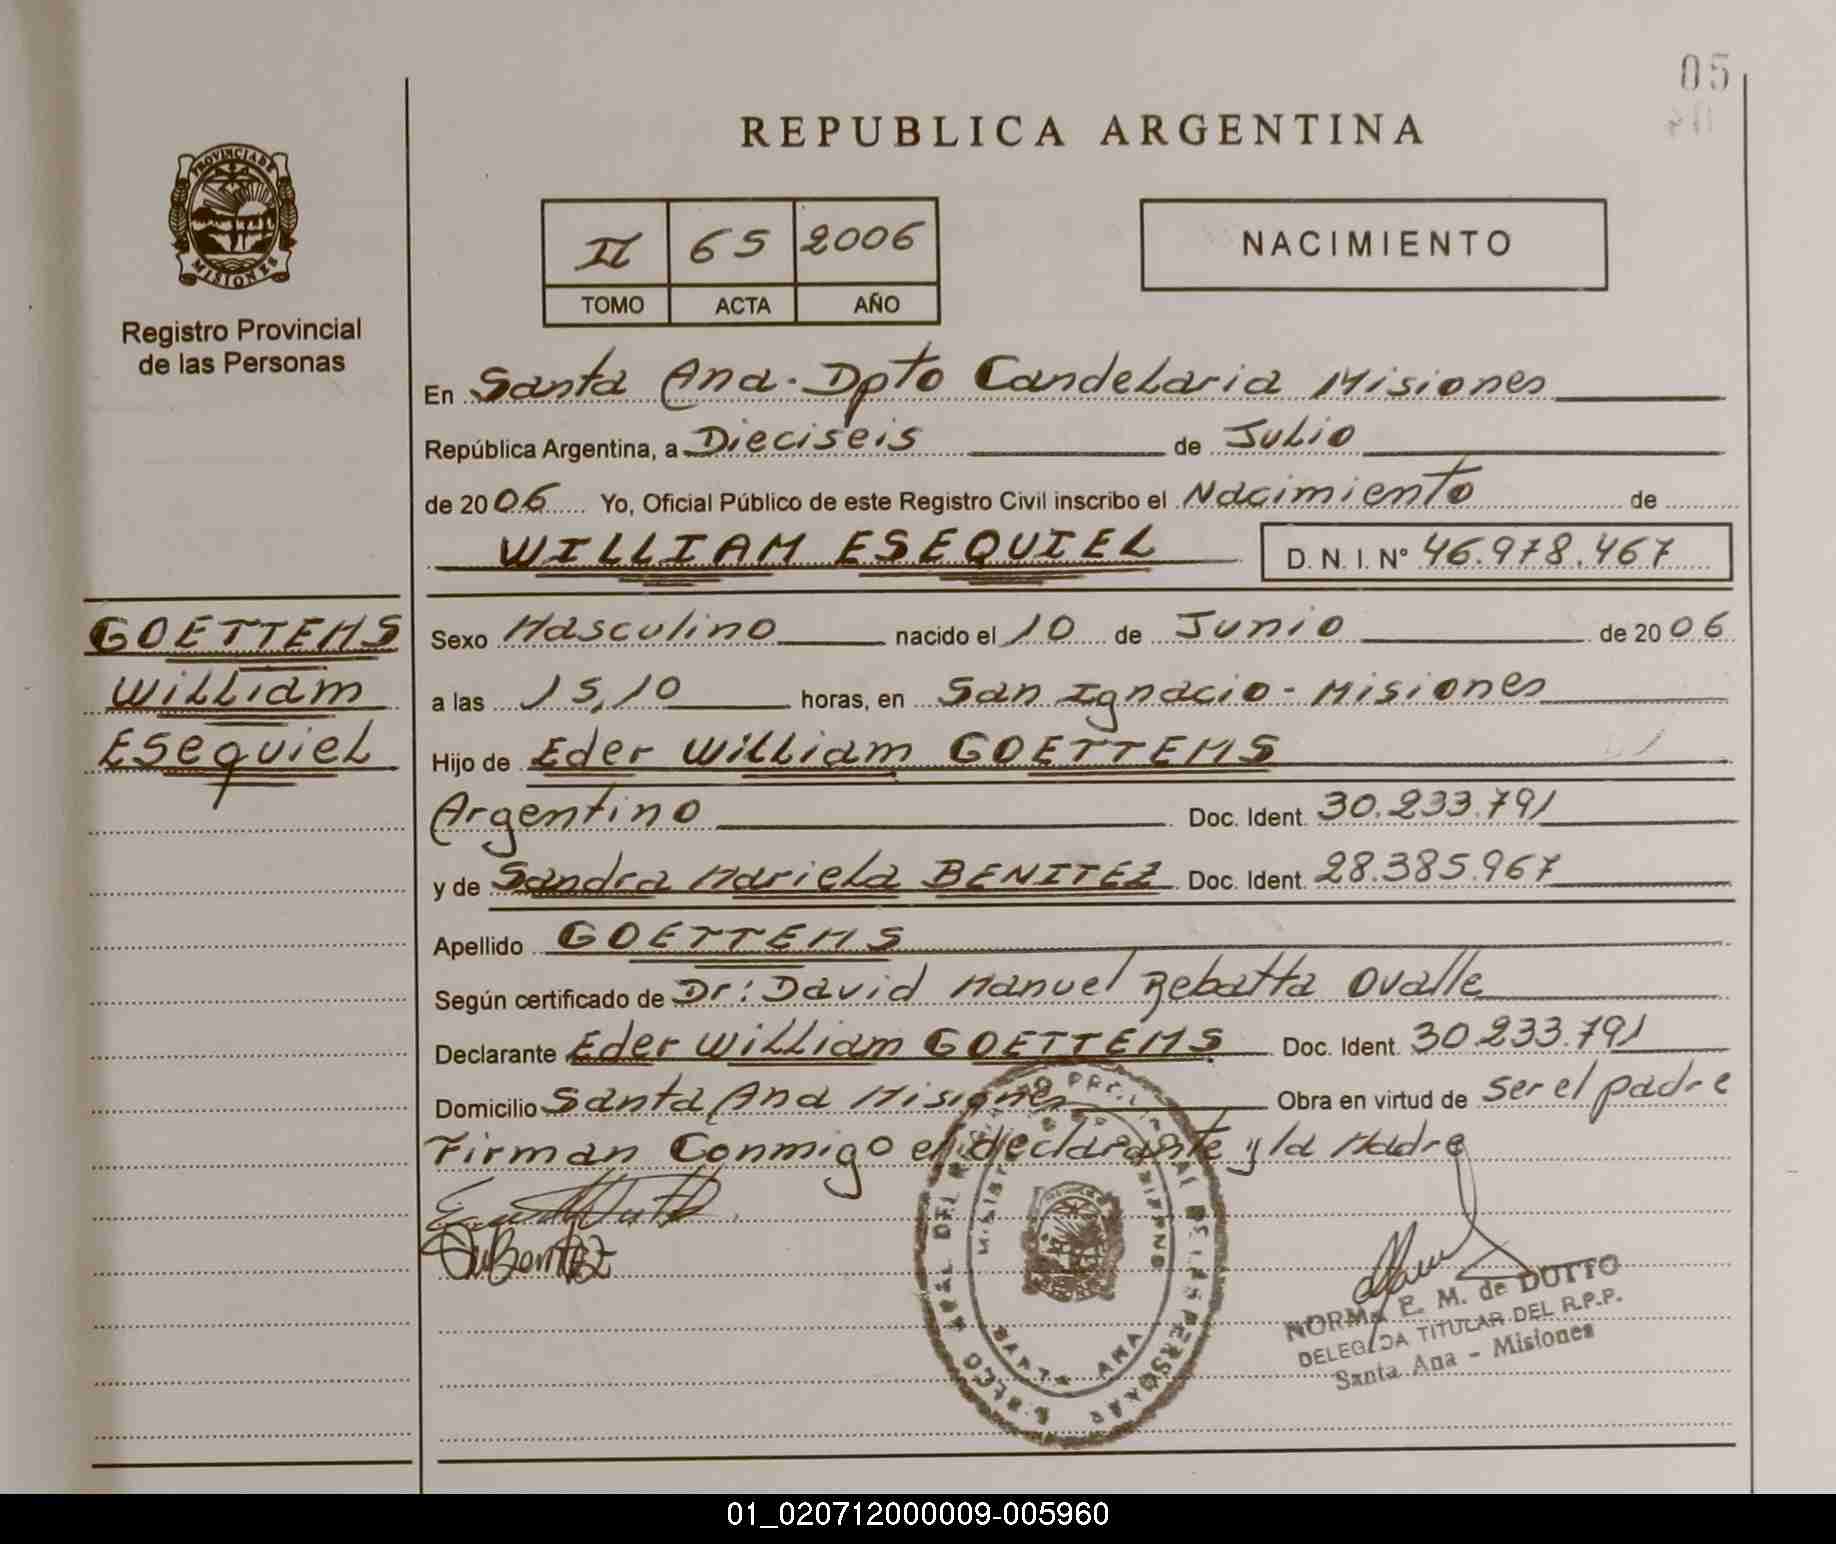 05
REPUBLICA ARGENTINA
PROVINCIA DE
MISIONES
Registro Provincial
de las Personas
II 65 2006
TOMO ACTA AÑO
NACIMIENTO
En Santa Ana. Dpto Candelaria Misiones
República Argentina, a Dieciseis de Julio
de 2006 Yo, Oficial Público de este Registro Civil inscribo el Nacimiento de
WILLIAM ESEQUIEL D. N. I. N° 46.978.467
GOETTEMS
William
Esequiel
Sexo Masculino nacido el 10 de Junio de 2006
a las 15,10 horas, en San Ignacio - Misiones
Hijo de Eder William GOETTEMS
Argentino Doc. Ident. 30.233.791
y de Sandra Mariela BENITEZ Doc. Ident. 28.385.967
Apellido GOETTEMS
Según certificado de Dr: David Manuel Rebatta Ovalle
Declarante Eder William GOETTEMS Doc. Ident. 30.233.791
Domicilio Santa Ana Misiones Obra en virtud de Ser el padre
Firman Conmigo el declarante y la Madre
SANTA ANA
NORMA E. M. de DUTTO
DELEGADA TITULAR DEL R.P.P.
Santa Ana - Misiones
01_020712000009-005960